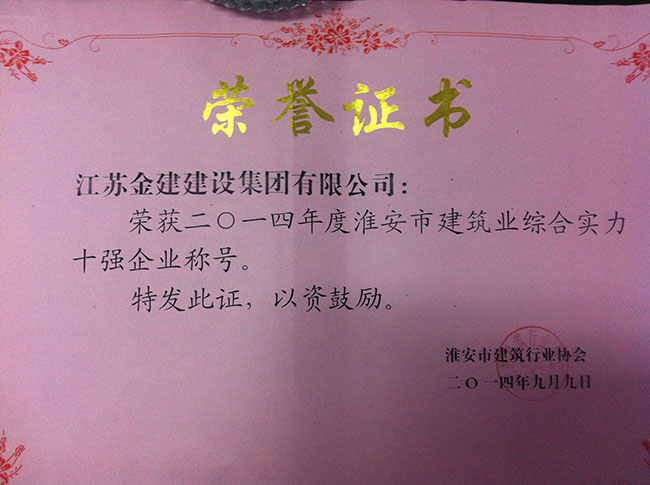 荣誉证书
江苏金建建设集团有限公司：
荣获二〇一四年度淮安市建筑业综合实力
十强企业称号。
特发此证，以资鼓励。
淮安市建筑行业协会
二〇一四年九月九日